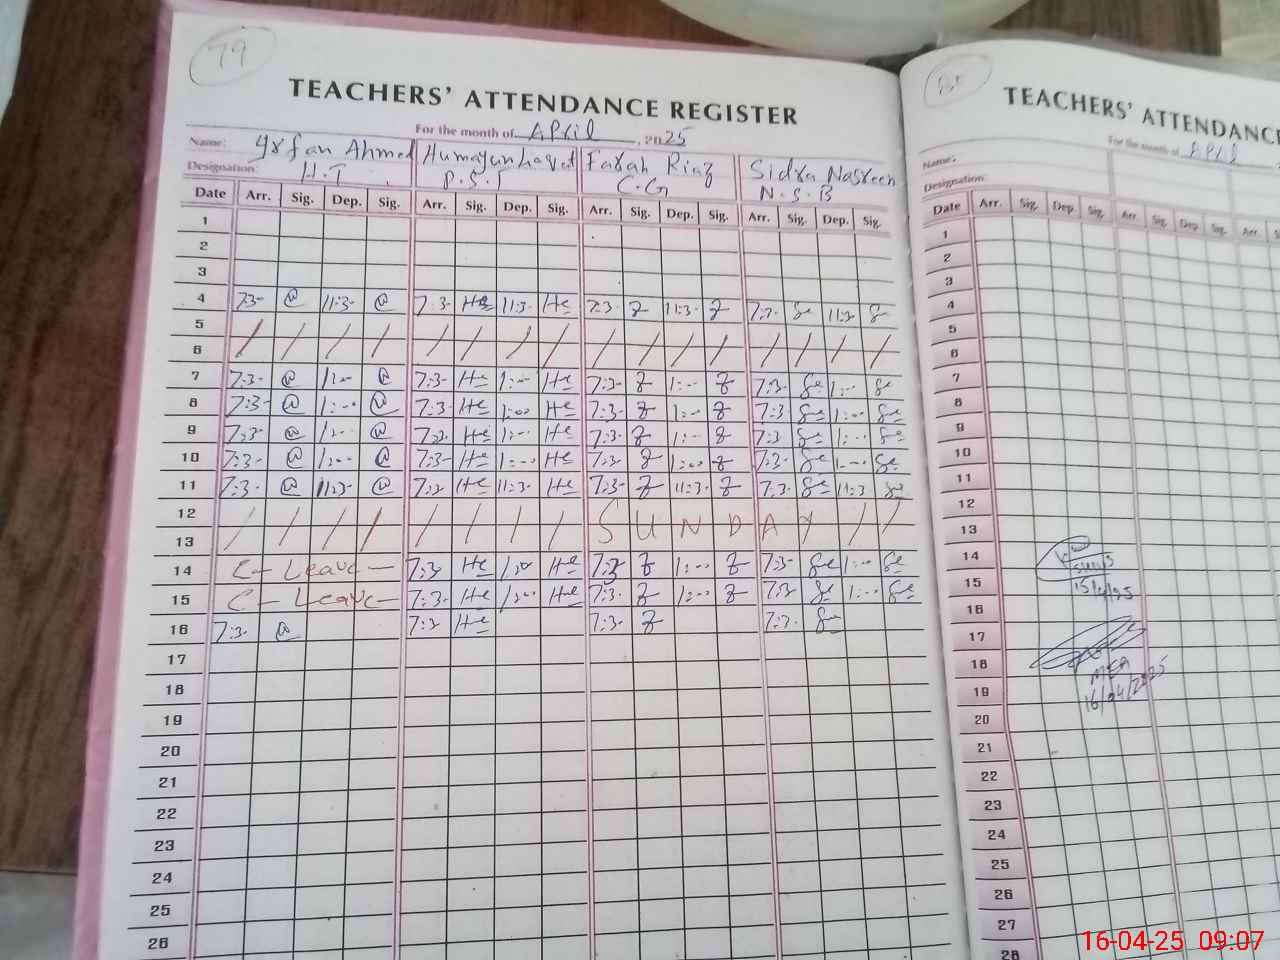 79
TEACHERS' ATTENDANCE REGISTER
For the month of April, 2025
Name: Yrfan Ahmed Humayun hayat Farah Riaz Sidra Nasreen
Designation: H.T P.S.T C.G N.S.B
Date Arr. Sig. Dep. Sig. Arr. Sig. Dep. Sig. Arr. Sig. Dep. Sig. Arr. Sig. Dep. Sig.
1
2
3
4 7:3- @ 11:3- @ 7:3- He 11:3- He 7:3- 11:3- 7:3- 11:3
5 / / / / / / / / / / / / / / / /
6
7 7:3- @ 1:00 @ 7:3- He 1:00 He 7:3- 1:00 7:3- 1:00
8 7:3- @ 1:00 @ 7:3- He 1:00 He 7:3- 1:00 7:3 1:00
9 7:3- @ 1:00 @ 7:3- He 1:00 He 7:3- 1:00 7:3 1:00
10 7:3- @ 1:00 @ 7:3- He 1:00 He 7:3 1:00 7:3- 1:00
11 7:3- @ 11:3- @ 7:3- He 11:3- He 7:3- 11:3- 7:3- 11:3
12 / / / / / / / / S U N D A Y / /
13
14 C- Leave - 7:3- He 1:00 He 7:3 1:00 7:3- 1:00
15 C- Leave - 7:3- He 1:00 He 7:3- 1:00 7:3- 1:00
16 7:3- @ 7:3- He 7:3- 7:3-
17
18
19
20
21
22
23
24
25
26
TEACHERS' ATTENDANC
For the month of April
Name:
Designation:
Date Arr. Sig. Dep. Sig. Arr. Sig. Dep. Sig. Arr. S
1
2
3
4
5
6
7
8
9
10
11
12
13
14
15
16
17
18
19
20
21
22
23
24
25
26
27
28
MEA
16/04/2025
16-04-25 09:07